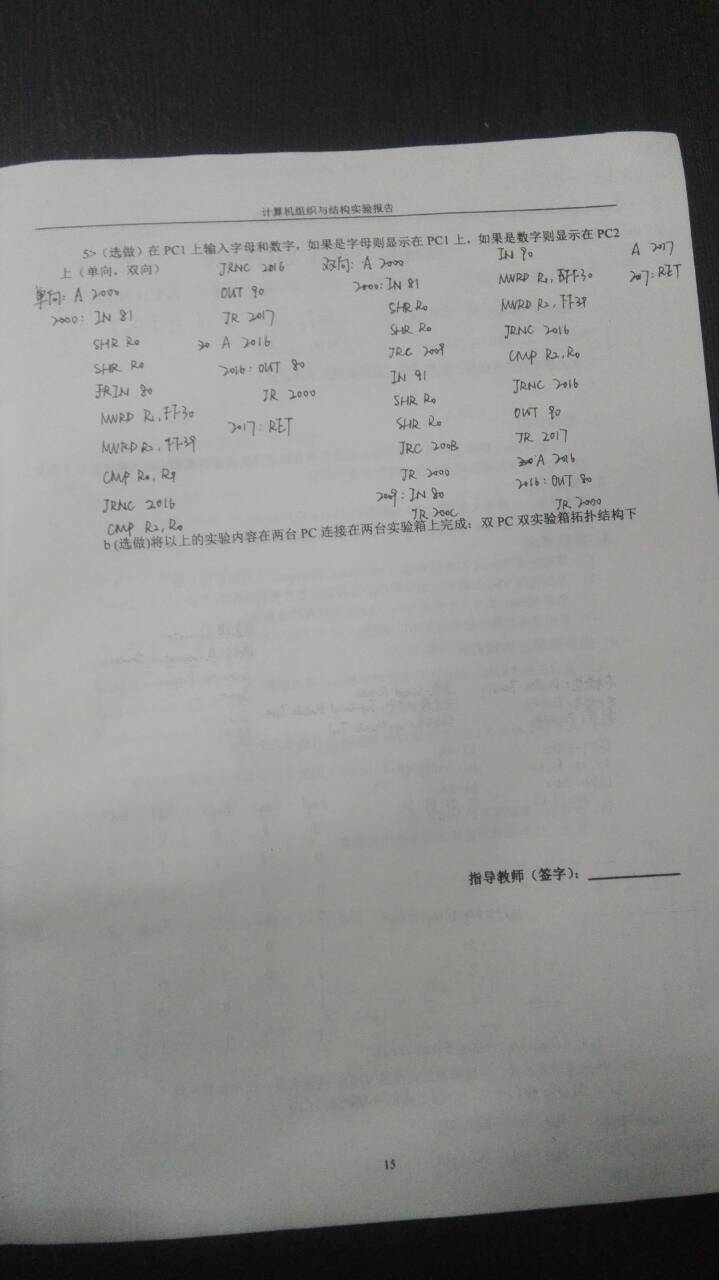 计算机组织与结构实验报告
5>（选做）在 PC1 上输入字母和数字，如果是字母则显示在 PC1 上，如果是数字则显示在 PC2
上（单向，双向）
单向: A 2000
2000: IN 81
SHR R0
SHR R0
IN 80
MVRD R1, FF30
MVRD R2, FF39
CMP R0, R1
JRNC 2016
CMP R2, R0
JRNC 2016
OUT 90
JR 2017
A 2016
2016: OUT 80
JR 2000
2017: RET
双向: A 2000
2000: IN 81
SHR R0
SHR R0
JRC 2009
IN 91
SHR R0
SHR R0
JRC 200B
JR 2000
2009: IN 80
JR 200C
IN 90
MVRD R1, FF30
MVRD R2, FF39
JRNC 2016
CMP R2, R0
JRNC 2016
OUT 90
JR 2017
A 2016
2016: OUT 80
JR 2000
A 2017
2017: RET
b (选做)将以上的实验内容在两台 PC 连接在两台实验箱上完成：双 PC 双实验箱拓扑结构下
指导教师（签字）：
15